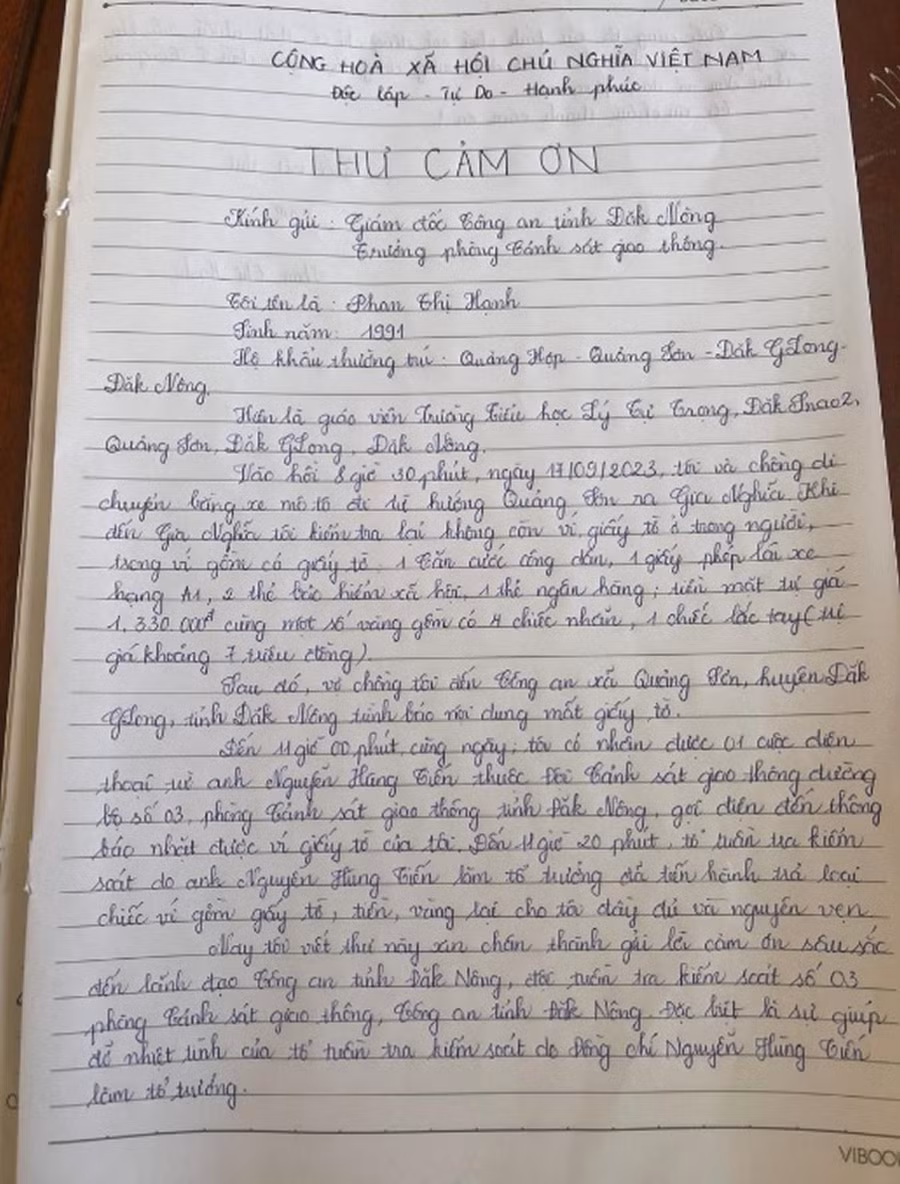 CỘNG HOÀ XÃ HỘI CHỦ NGHĨA VIỆT NAM
Độc lập - Tự Do - Hạnh phúc
THƯ CẢM ƠN
Kính gửi : Giám đốc Công an tỉnh Đăk Nông
Trưởng phòng Cảnh sát giao thông.
Tôi tên là : Phan Thị Hạnh
Sinh năm: 1991
Hộ khẩu thường trú : Quảng Hợp - Quảng Sơn - Đăk GLong -
Đăk Nông.
Hiện là giáo viên Trường Tiểu học Lý Tự Trọng, Đăk Snao2,
Quảng Sơn, Đăk GLong, Đăk Nông.
Vào hồi 8 giờ 30 phút, ngày 17/09/2023, tôi và chồng di
chuyển bằng xe mô tô đi từ hướng Quảng Sơn ra Gia Nghĩa. Khi
đến Gia Nghĩa tôi kiểm tra lại không còn ví, giấy tờ ở trong người,
trong ví gồm có giấy tờ 1 Căn cước công dân, 1 giấy phép lái xe
hạng A1, 2 thẻ bảo hiểm xã hội, 1 thẻ ngân hàng; tiền mặt trị giá
1.330.000đ cùng một số vàng gồm có 4 chiếc nhẫn, 1 chiếc lắc tay (trị
giá khoảng 7 triệu đồng).
Sau đó, vợ chồng tôi đến Công an xã Quảng Sơn, huyện Đăk
GLong, tỉnh Đăk Nông trình báo nội dung mất giấy tờ.
Đến 11 giờ 00 phút, cùng ngày; tôi có nhận được 01 cuộc điện
thoại từ anh Nguyễn Hùng Tiến thuộc Đội Cảnh sát giao thông đường
bộ số 03, phòng Cảnh sát giao thông tỉnh Đăk Nông, gọi điện đến thông
báo nhặt được ví giấy tờ của tôi. Đến 11 giờ 20 phút, tổ tuần tra kiểm
soát do anh Nguyễn Hùng Tiến làm tổ trưởng đã tiến hành trả loại
chiếc ví gồm giấy tờ, tiền, vàng lại cho tôi đầy đủ và nguyên vẹn
Nay tôi viết thư này xin chân thành gửi lời cảm ơn sâu sắc
đến lãnh đạo Công an tỉnh Đăk Nông, đội tuần tra kiểm soát số 03
phòng Cảnh sát giao thông, Công an tỉnh Đăk Nông. Đặc biệt là sự giúp
đỡ nhiệt tình của tổ tuần tra kiểm soát do Đồng chí Nguyễn Hùng Tiến
làm tổ trưởng.